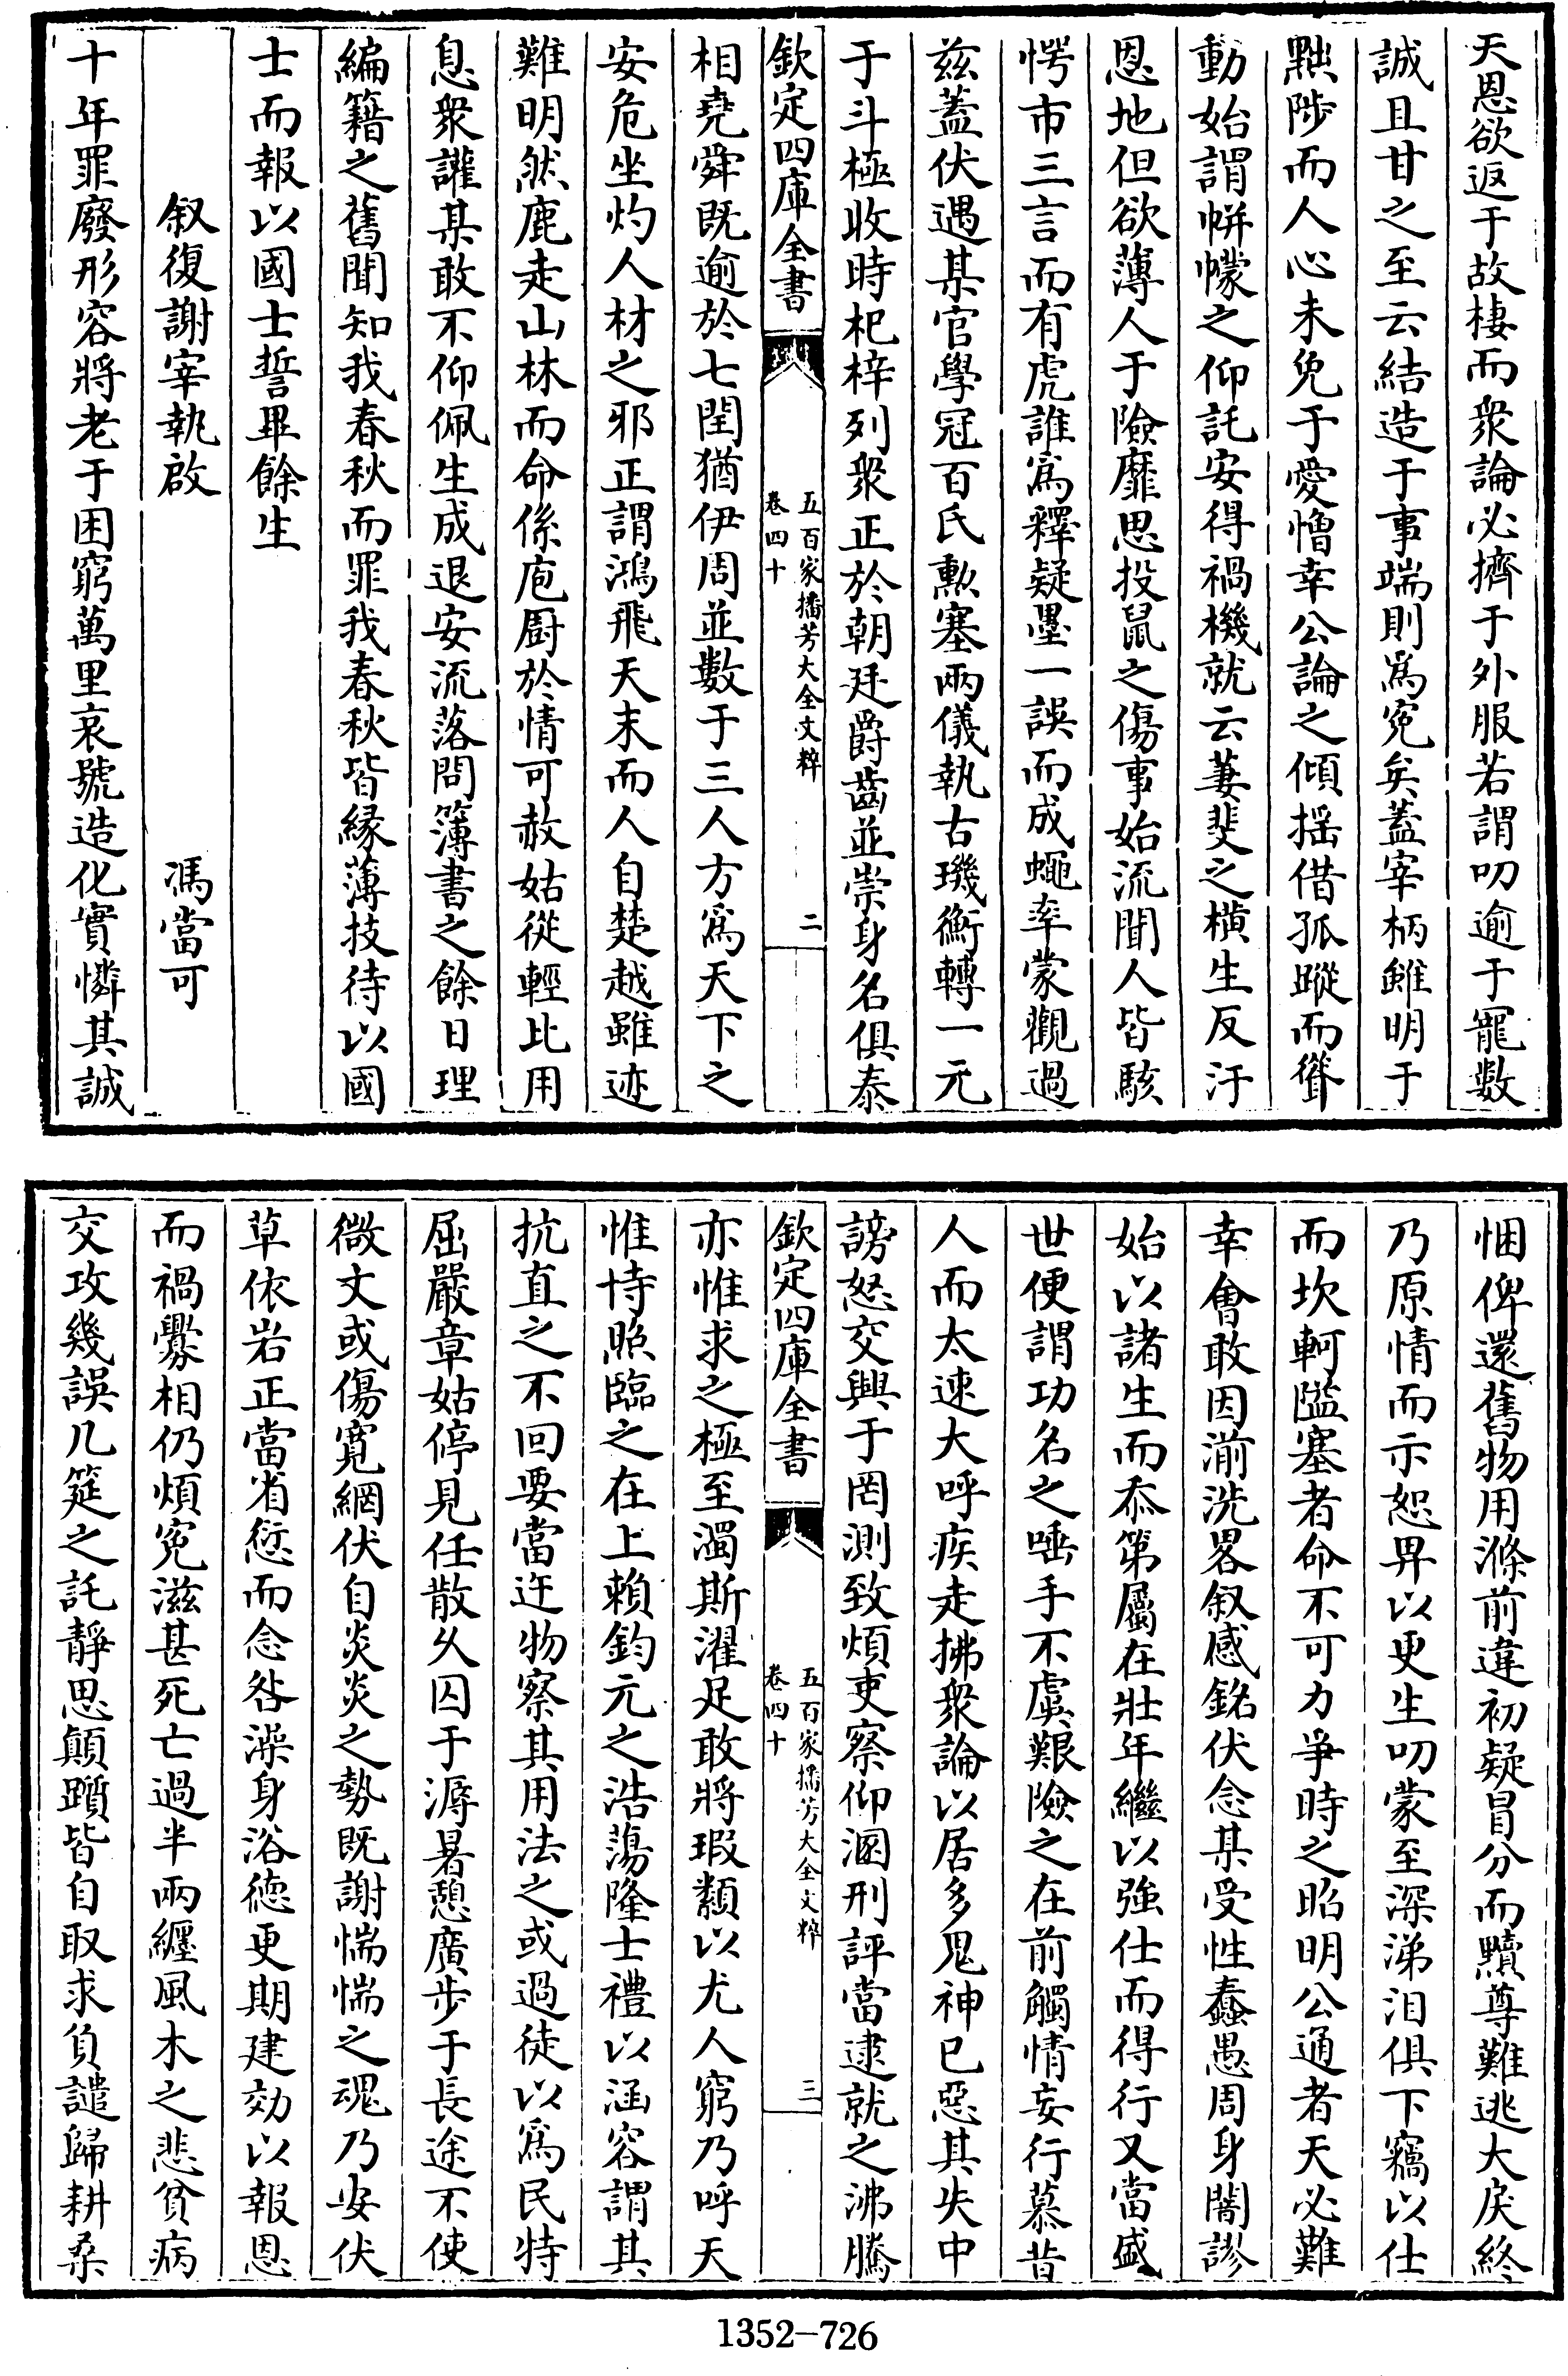 天恩欲返于故棲而衆論必擠于外服若謂叨逾于寵數
誠且甘之至云結造于事端則爲寃矣蓋宰柄雖明于
黜陟而人心未免于愛憎幸公論之傾揺借孤蹤而聳
動始謂帡幪之仰託安得禍機就云萋斐之横生反汙
恩地但欲薄人于險靡思投鼠之傷事始流聞人皆駭
愕市三言而有虎誰爲釋疑墨一誤而成蠅率蒙觀過
兹蓋伏遇某官學冠百氏勲塞兩儀執古璣衡轉一元
于斗極收時杞梓列衆正於朝廷爵齒並崇身名俱泰
欽定四庫全書
五百家播芳大全文粹
卷四十
二
相堯舜既逾於七閏猶伊周並數于三人方爲天下之
安危坐灼人材之邪正謂鴻飛天末而人自楚越雖迹
難明然鹿走山林而命係庖厨於情可赦姑從輕比用
息衆讙某敢不仰佩生成退安流落問簿書之餘日理
編籍之舊聞知我春秋而罪我春秋皆縁薄技待以國
士而報以國士誓畢餘生
叙復謝宰執啟
馮當可
十年罪廢形容將老于困窮萬里哀號造化實憐其誠
悃俾還舊物用滌前違初疑冒分而黷尊難逃大戾終
乃原情而示恕畀以更生叨蒙至深涕泪俱下竊以仕
而坎軻隘塞者命不可力爭時之昭明公通者天必難
幸會敢因湔洗畧叙感銘伏念某受性蠢愚周身闇謬
始以諸生而忝第屬在壯年繼以強仕而得行又當盛
世便謂功名之唾手不虞艱險之在前觸情妄行慕昔
人而太速大呼疾走拂衆論以居多鬼神已惡其失中
謗怒交興于罔測致煩吏察仰溷刑評當逮就之沸騰
欽定四庫全書
五百家播芳大全文粹
卷四十
三
亦惟求之極至濁斯濯足敢將瑕纇以尤人窮乃呼天
惟恃照臨之在上賴鈞元之浩蕩隆士禮以涵容謂其
抗直之不回要當迕物察其用法之或過徒以爲民特
屈嚴章姑停見任散久囚于溽暑憩廣步于長途不使
微文或傷寛網伏自炎炎之勢既謝惴惴之魂乃安伏
草依岩正當省愆而念咎澡身浴德更期建効以報恩
而禍釁相仍煩寃滋甚死亡過半兩纒風木之悲貧病
交攻幾誤几筵之託靜思顛躓皆自取求負譴歸耕桑
1352-726